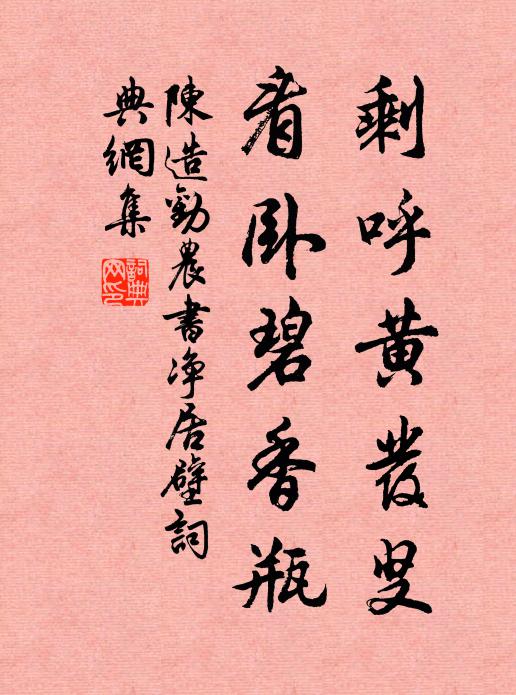 剩呼黄发叟
看卧碧香瓶
陳造勸農書净居壁詞
典網集
詞典網印